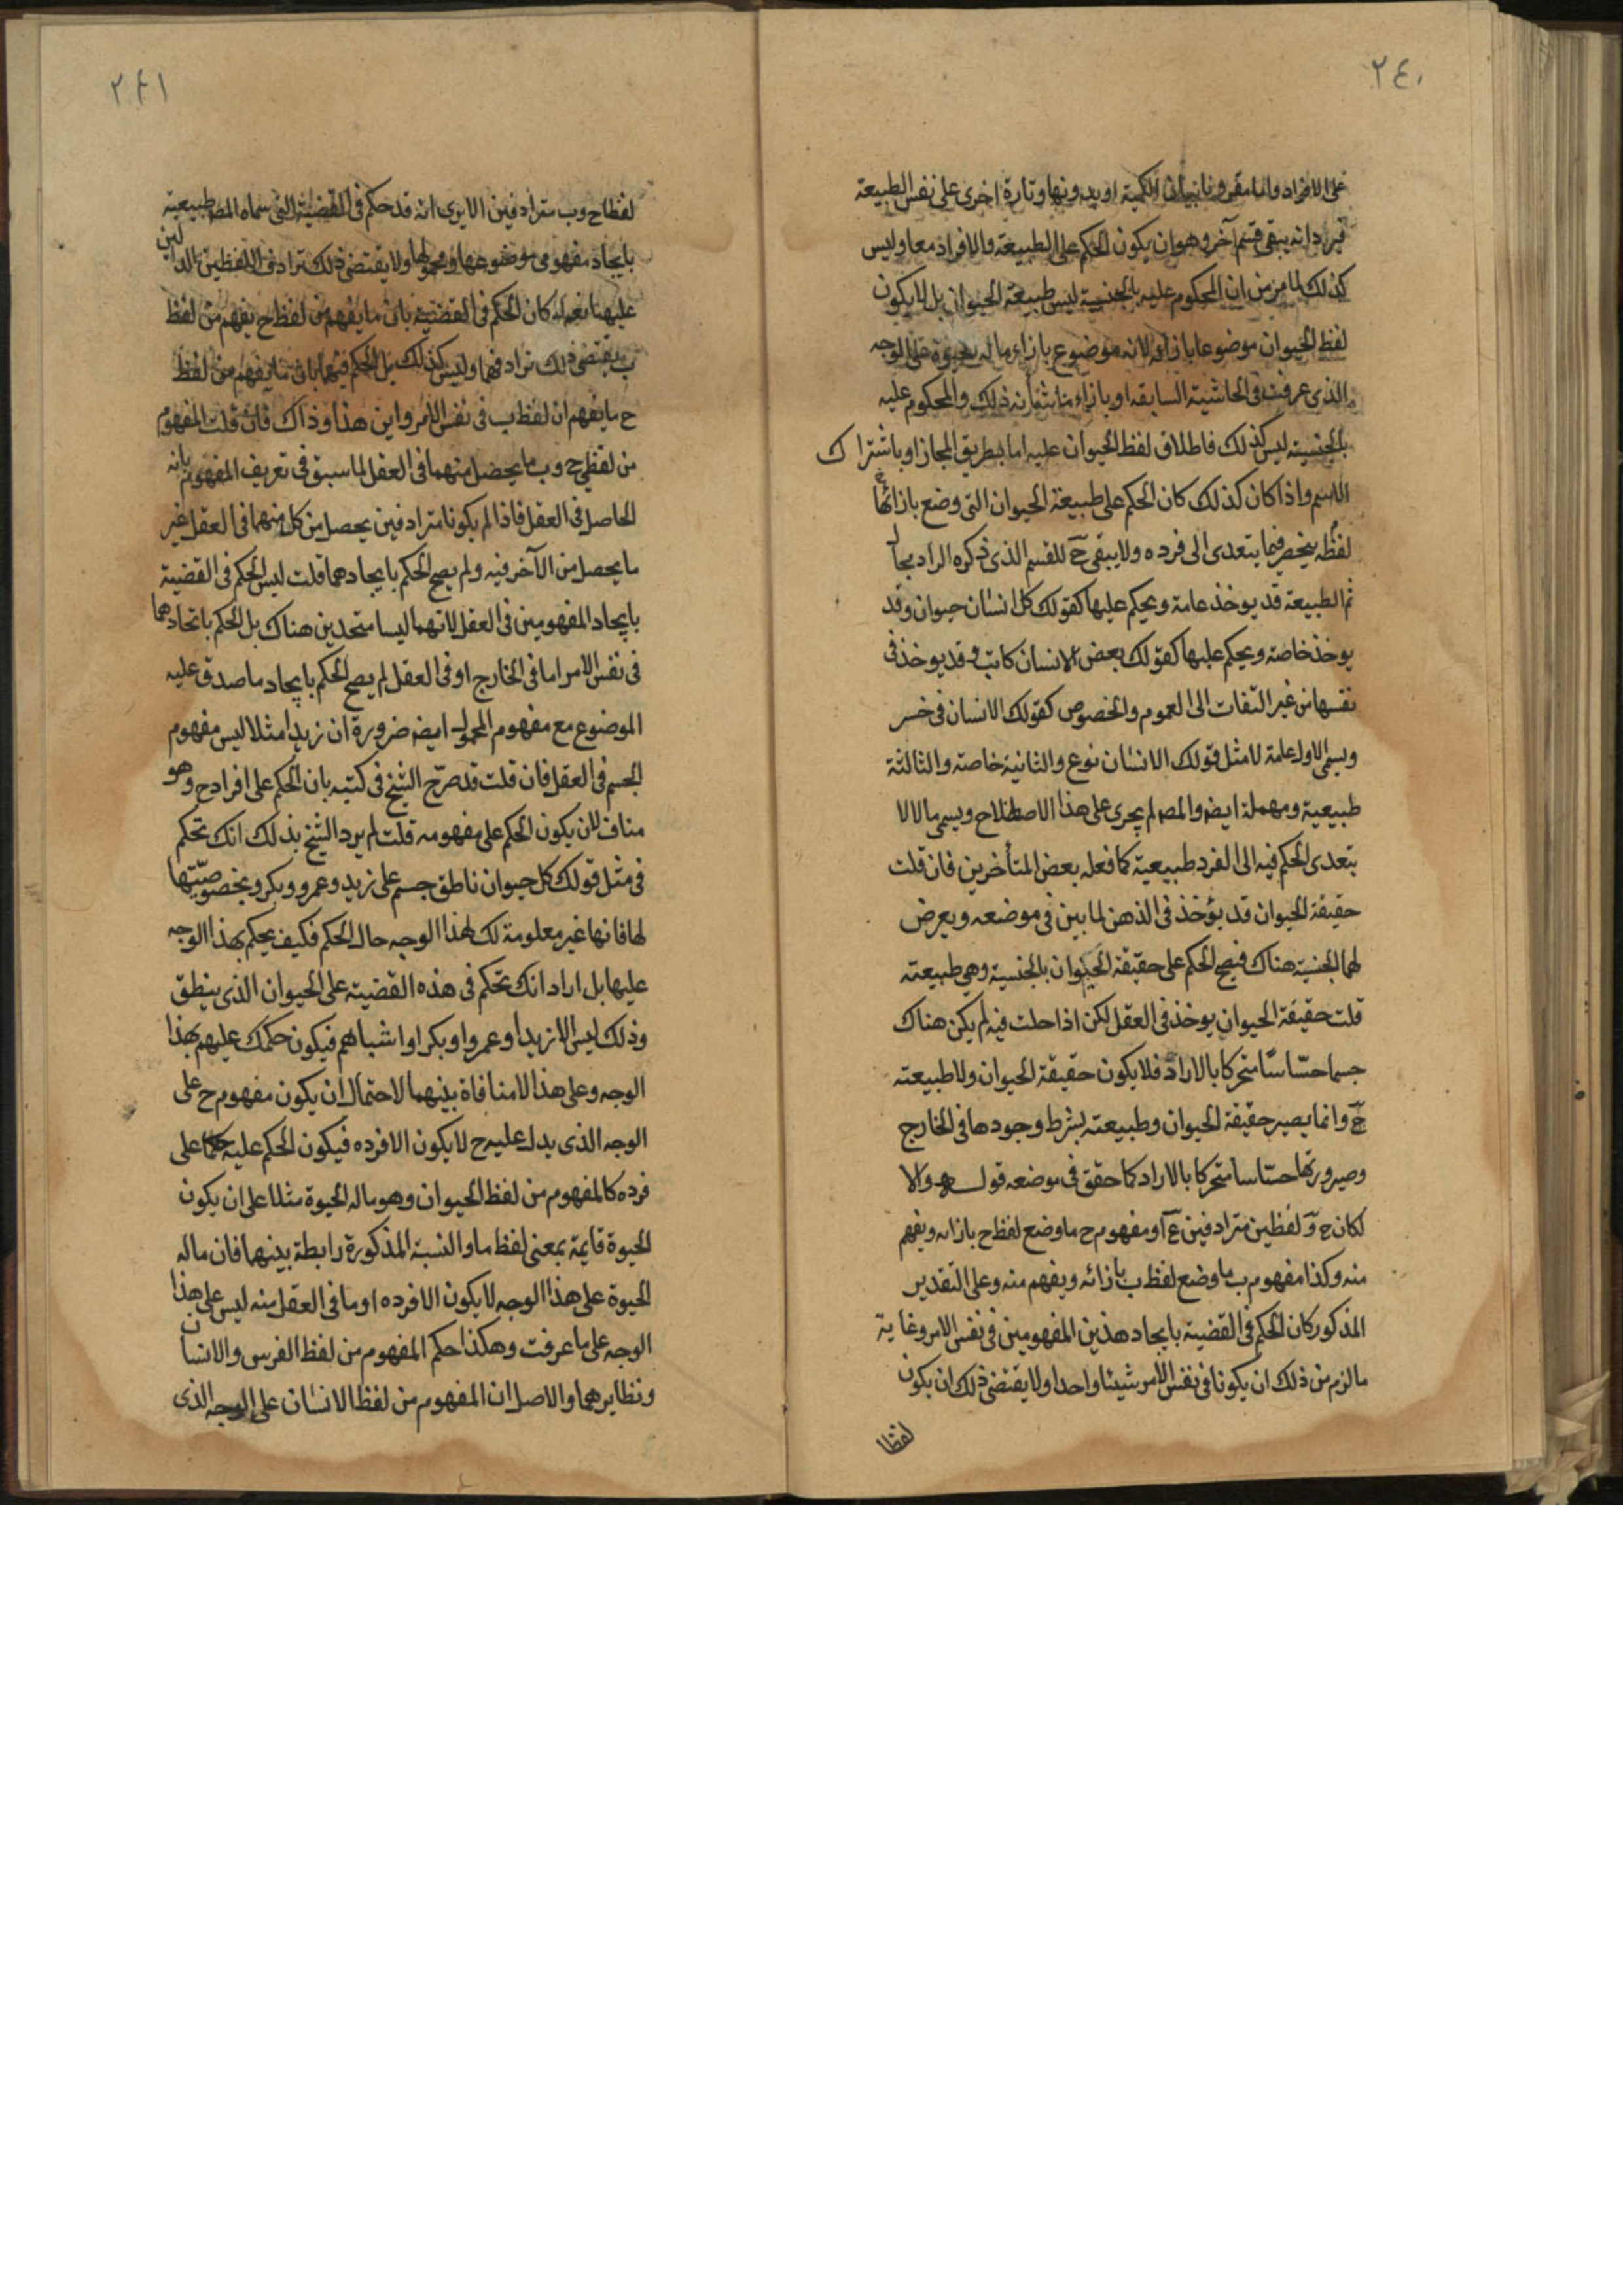 ٢٤٠
على الافراد واما مقرونا ببيان الكمية او بدونها وتارة اخرى على نفس الطبيعة
فيرد انه يبقى قسم آخر وهو ان يكون الحكم على الطبيعة والافراد معا وليس
كذلك لما مر من ان المحكوم عليه بالجنسية ليس طبيعة الحيوان بل لا يكون
لفظ الحيوان موضوعا بازائه لانه موضوع بازاء ما له حيوة على الوجه
الذى عرفت فى الحاشية السابقه او بازاء ما شانه ذلك والمحكوم عليه
بالجنسية ليس كذلك فاطلاق لفظ الحيوان عليه اما بطريق المجاز او باشتراك
الاسم واذا كان كذلك كان الحكم على طبيعة الحيوان التى وضع بازائها
لفظه ينحصر فيما يتعدى الى فرده ولا يبقى ح للقسم الذى ذكره الراد مجال
ثم الطبيعة قد يوخذ عامة ويحكم عليها كقولك كل انسان حيوان وقد
يوخذ خاصة ويحكم عليها كقولك بعض الانسان كاتب وقد يوخذ فى
نفسها من غير التفات الى العموم والخصوص كقولك الانسان فى خسر
ويسمى الاول عامة لا مثل قولك الانسان نوع والثانية خاصة والثالثة
طبيعية ومهملة ايضا والمصـ لم يجرى على هذا الاصطلاح ويسمى ما لا لا
يتعدى الحكم فيه الى الفرد طبيعية كما فعله بعض المتأخرين فان قلت
حقيقة الحيوان قد يؤخذ فى الذهن لما بين فى موضعه ويعرض
لها الجنسية هناك فيصح الحكم على حقيقة الحيوان بالجنسية وهي طبيعته
قلت حقيقة الحيوان يوخذ فى العقل لكن اذا حلت فيه لم يكن هناك
جسما حسّاسًا متحركا بالارادة فلا يكون حقيقة الحيوان ولا طبيعته
ح وانما يصير حقيقة الحيوان وطبيعته بشرط وجودها فى الخارج
وصيرورتها حسّاسا متحركا بالاراد كما حقق فى موضعه قوله والا
لكان ح و لفظين مترادفين مفهوم ح ما وضع لفظ ح بازائه ويفهم
منه وكذا مفهوم ب ما وضع لفظ ب بازائه ويفهم منه وعلى التقدير
المذكور كان الحكم فى القضية بايجاد هذين المفهومين فى نفس الامر وغاية
ما لزم من ذلك ان يكونا فى نفس الامر شيئا واحدا ولا يقتضى ذلك ان يكون
لفظا
٢٤١
لفظا ح وب مترادفين الا يرى انه قد حكم فى القضية التى سماه المصـ طبيعية
بايجاد مفهومى موضوعها ومحمولها ولا يقتضى ذلك ترادف اللفظين الدالين
عليهما نعم لو كان الحكم فى القضية بان ما يفهم من لفظ ح يفهم من لفظ
ب يقتضى ذلك ترادفهما وليس كذلك بل الحكم فيها بان ما يفهم من لفظ
ح ما يفهم ان لفظ ب فى نفس الامر واين هذا وذاك فان قلت المفهوم
من لفظى ح وب ما يحصل منهما فى العقل لما سبق فى تعريف المفهوم بانه
الحاصل فى العقل فاذا لم يكونا مترادفين يحصل من كل منهما فى العقل غير
ما يحصل من الآخر فيه ولم يصح الحكم بايجادهما قلت ليس الحكم فى القضية
بايجاد المفهومين فى العقل لانهما ليسا متحدين هناك بل الحكم باتحادهما
فى نفس الامر اما فى الخارج او فى العقل لم يصح الحكم بايجاد ما صدق عليه
الموضوع مع مفهوم المحمول ايضا ضرورة ان زيدا مثلا ليس مفهوم
الجسم فى العقل فان قلت قد صرّح الشيخ فى كتبه بان الحكم على افراد ح وهو
مناف لان يكون الحكم على مفهومه قلت لم يرد الشيخ بذلك انك تحكم
فى مثل قولك كل حيوان ناطق جسم على زيد وعمرو وبكر وبخصوصيّتها
لها فانها غير معلومة لك لهذا الوجه حال الحكم فكيف يحكم بهذا الوجه
عليها بل اراد انك تحكم فى هذه القضية على الحيوان الذى ينطق
وذلك ليس الا زيدا وعمروا وبكرا واشباههم فيكون حكمك عليهم بهذا
الوجه وعلى هذا لا منافاة بينهما لاحتمال ان يكون مفهوم ح على
الوجه الذى يدل عليه ح لا يكون الا فرده فيكون الحكم عليه حكما على
فرده كالمفهوم من لفظ الحيوان وهو ماله الحيوة مثلا على ان يكون
الحيوة قايمة بمعنى لفظ ما والنسبة المذكورة رابطة بينهما فان ماله
الحيوة على هذا الوجه لا يكون الا فرده وما فى العقل منه ليس على هذا
الوجه على ما عرفت وهكذا حكم المفهوم من لفظ الفرس والانسان
ونظايرهما والاصل ان المفهوم من لفظ الانسان على الوجه الذى